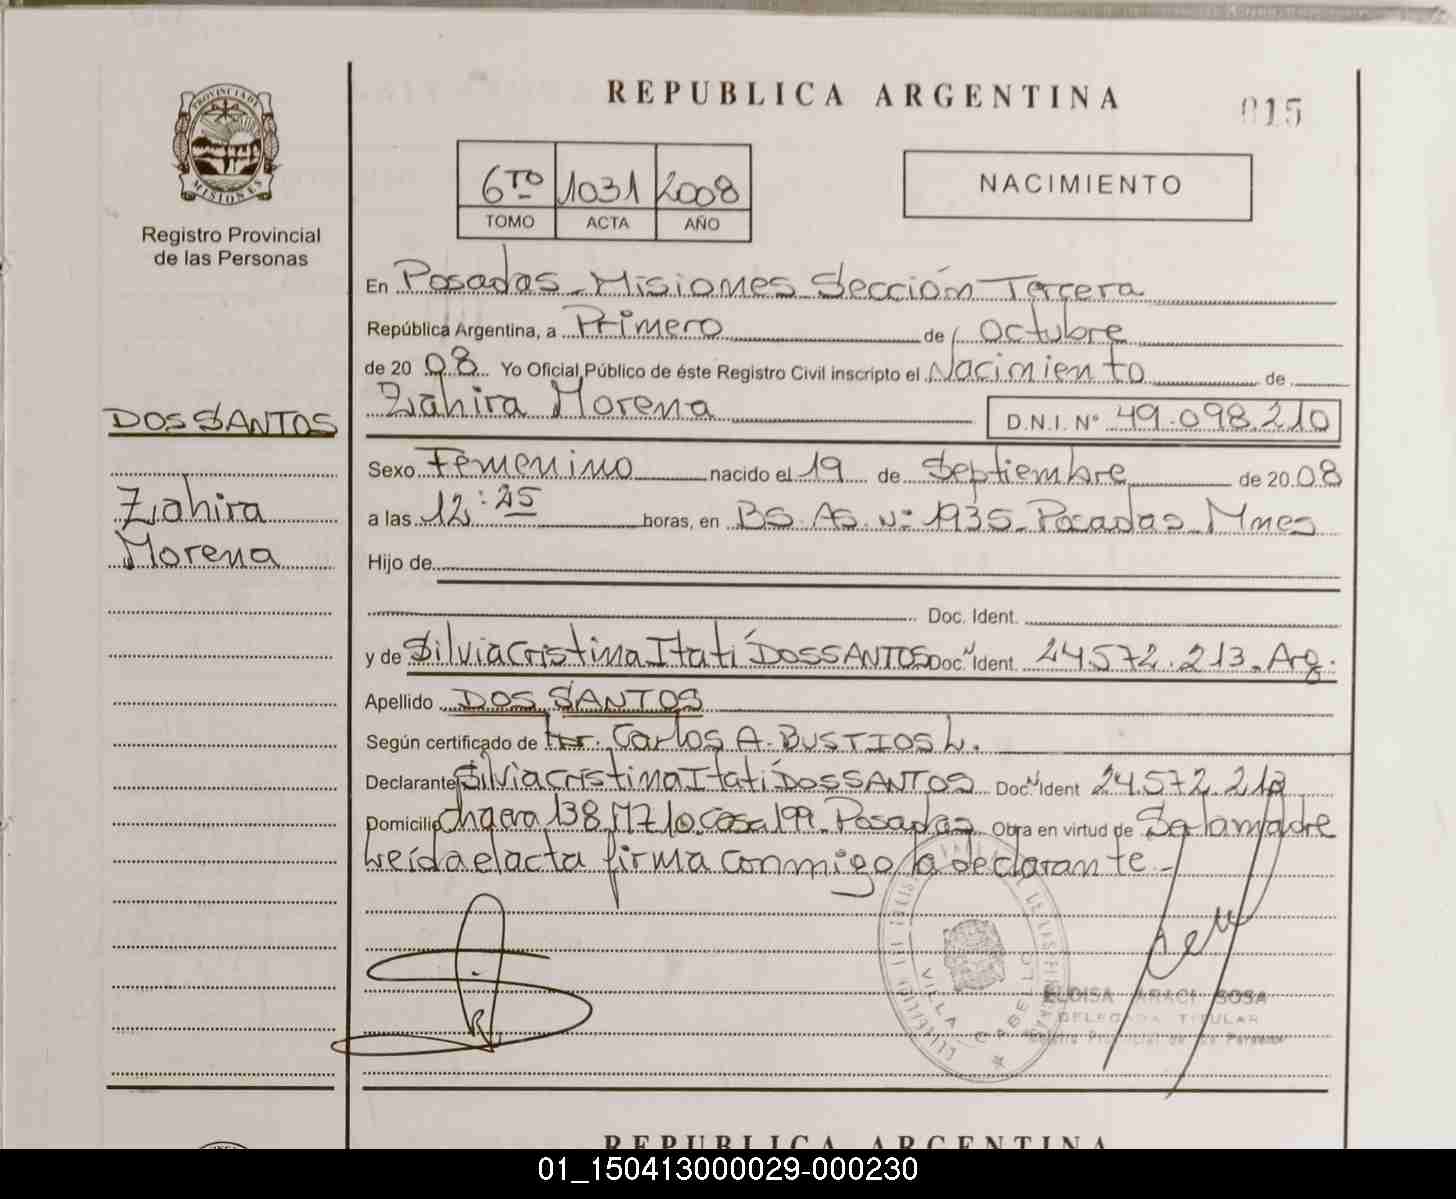 REPUBLICA ARGENTINA
015
PROVINCIA DE MISIONES
Registro Provincial
de las Personas
6TO 1031 2008
TOMO ACTA AÑO
NACIMIENTO
En Posadas - Misiones Sección Tercera
República Argentina, a Primero de Octubre
de 20 08 Yo Oficial Público de éste Registro Civil inscripto el Nacimiento de
Zahira Morena D.N.I. N° 49.098.210
DOS SANTOS
Zahira
Morena
Sexo Femenino nacido el 19 de Septiembre de 20 08
a las 12:25 horas, en BS. AS. Nº 1935 - Posadas Mnes
Hijo de
Doc. Ident.
y de Silvia Cristina Itatí DOS SANTOS Doc. N Ident. 24.572.213. Arg.
Apellido DOS SANTOS
Según certificado de Carlos A. BUSTIOS L.
Declarante Silvia Cristina Itatí DOS SANTOS Doc. N Ident 24.572.213
Domicilio Chacra 138, M710, Casa 199. Posadas Obra en virtud de Ser la madre
Leída el acta firma conmigo la declarante.-
VILLA CABELLO
ELOISA ARACI SOSA
DELEGADA TITULAR
REPUBLICA ARGENTINA
01_150413000029-000230